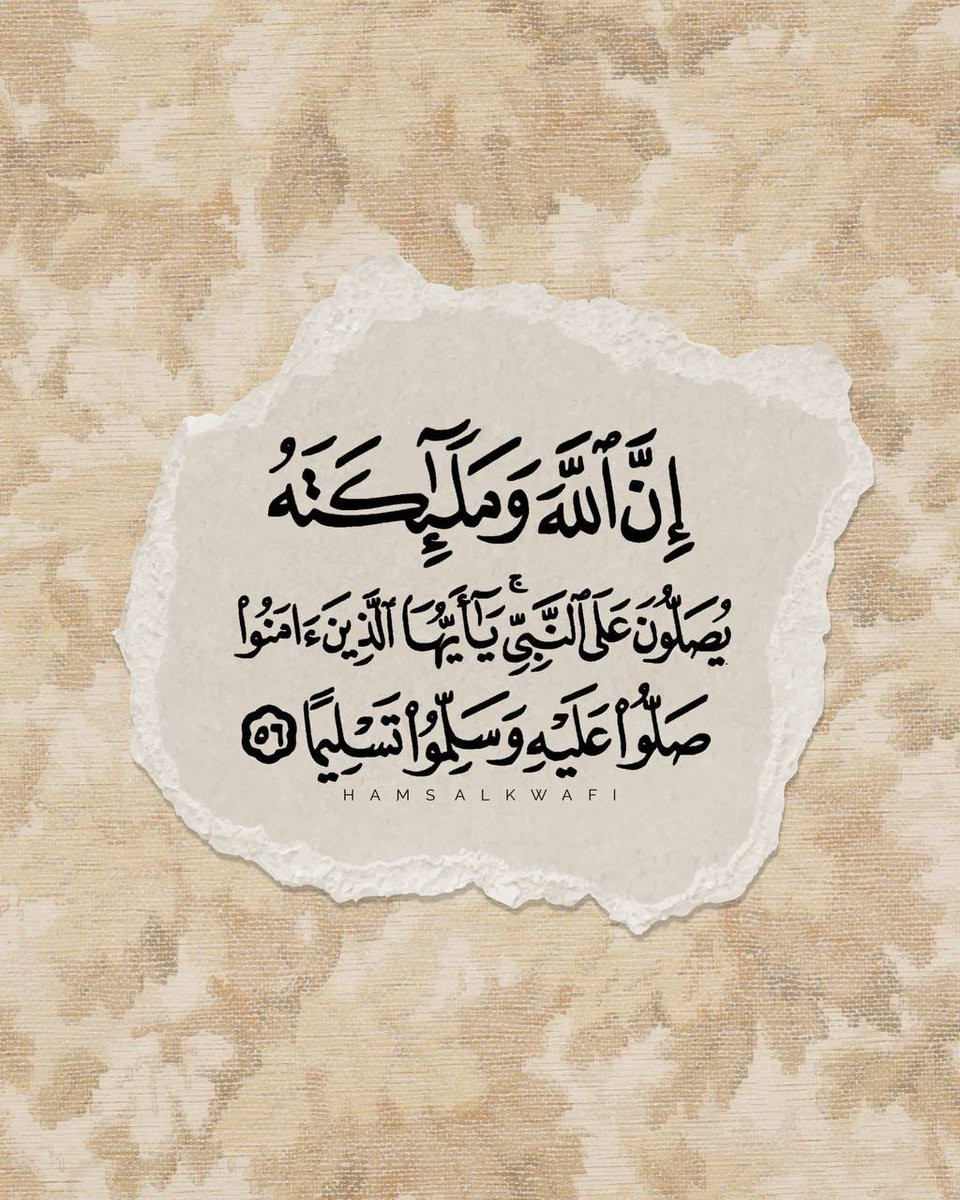 إِنَّ ٱللَّهَ وَمَلَٰٓئِكَتَهُۥ
يُصَلُّونَ عَلَى ٱلنَّبِيِّۚ يَٰٓأَيُّهَا ٱلَّذِينَ ءَامَنُوا۟
صَلُّوا۟ عَلَيْهِ وَسَلِّمُوا۟ تَسْلِيمًا ٥٦
HAMSALKWAFI